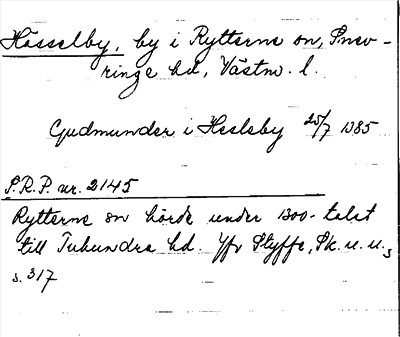 Hässelby, by i Rytterne sn, Snev-
ringe hd, Västm. l.
Gudmunder i Hesleby 25/7 1385
S.R.P. nr. 2145
Rytterne sn hörde under 1300-talet
till Tuhundra hd. Jfr Styffe, Sk. u. u.,
s. 317